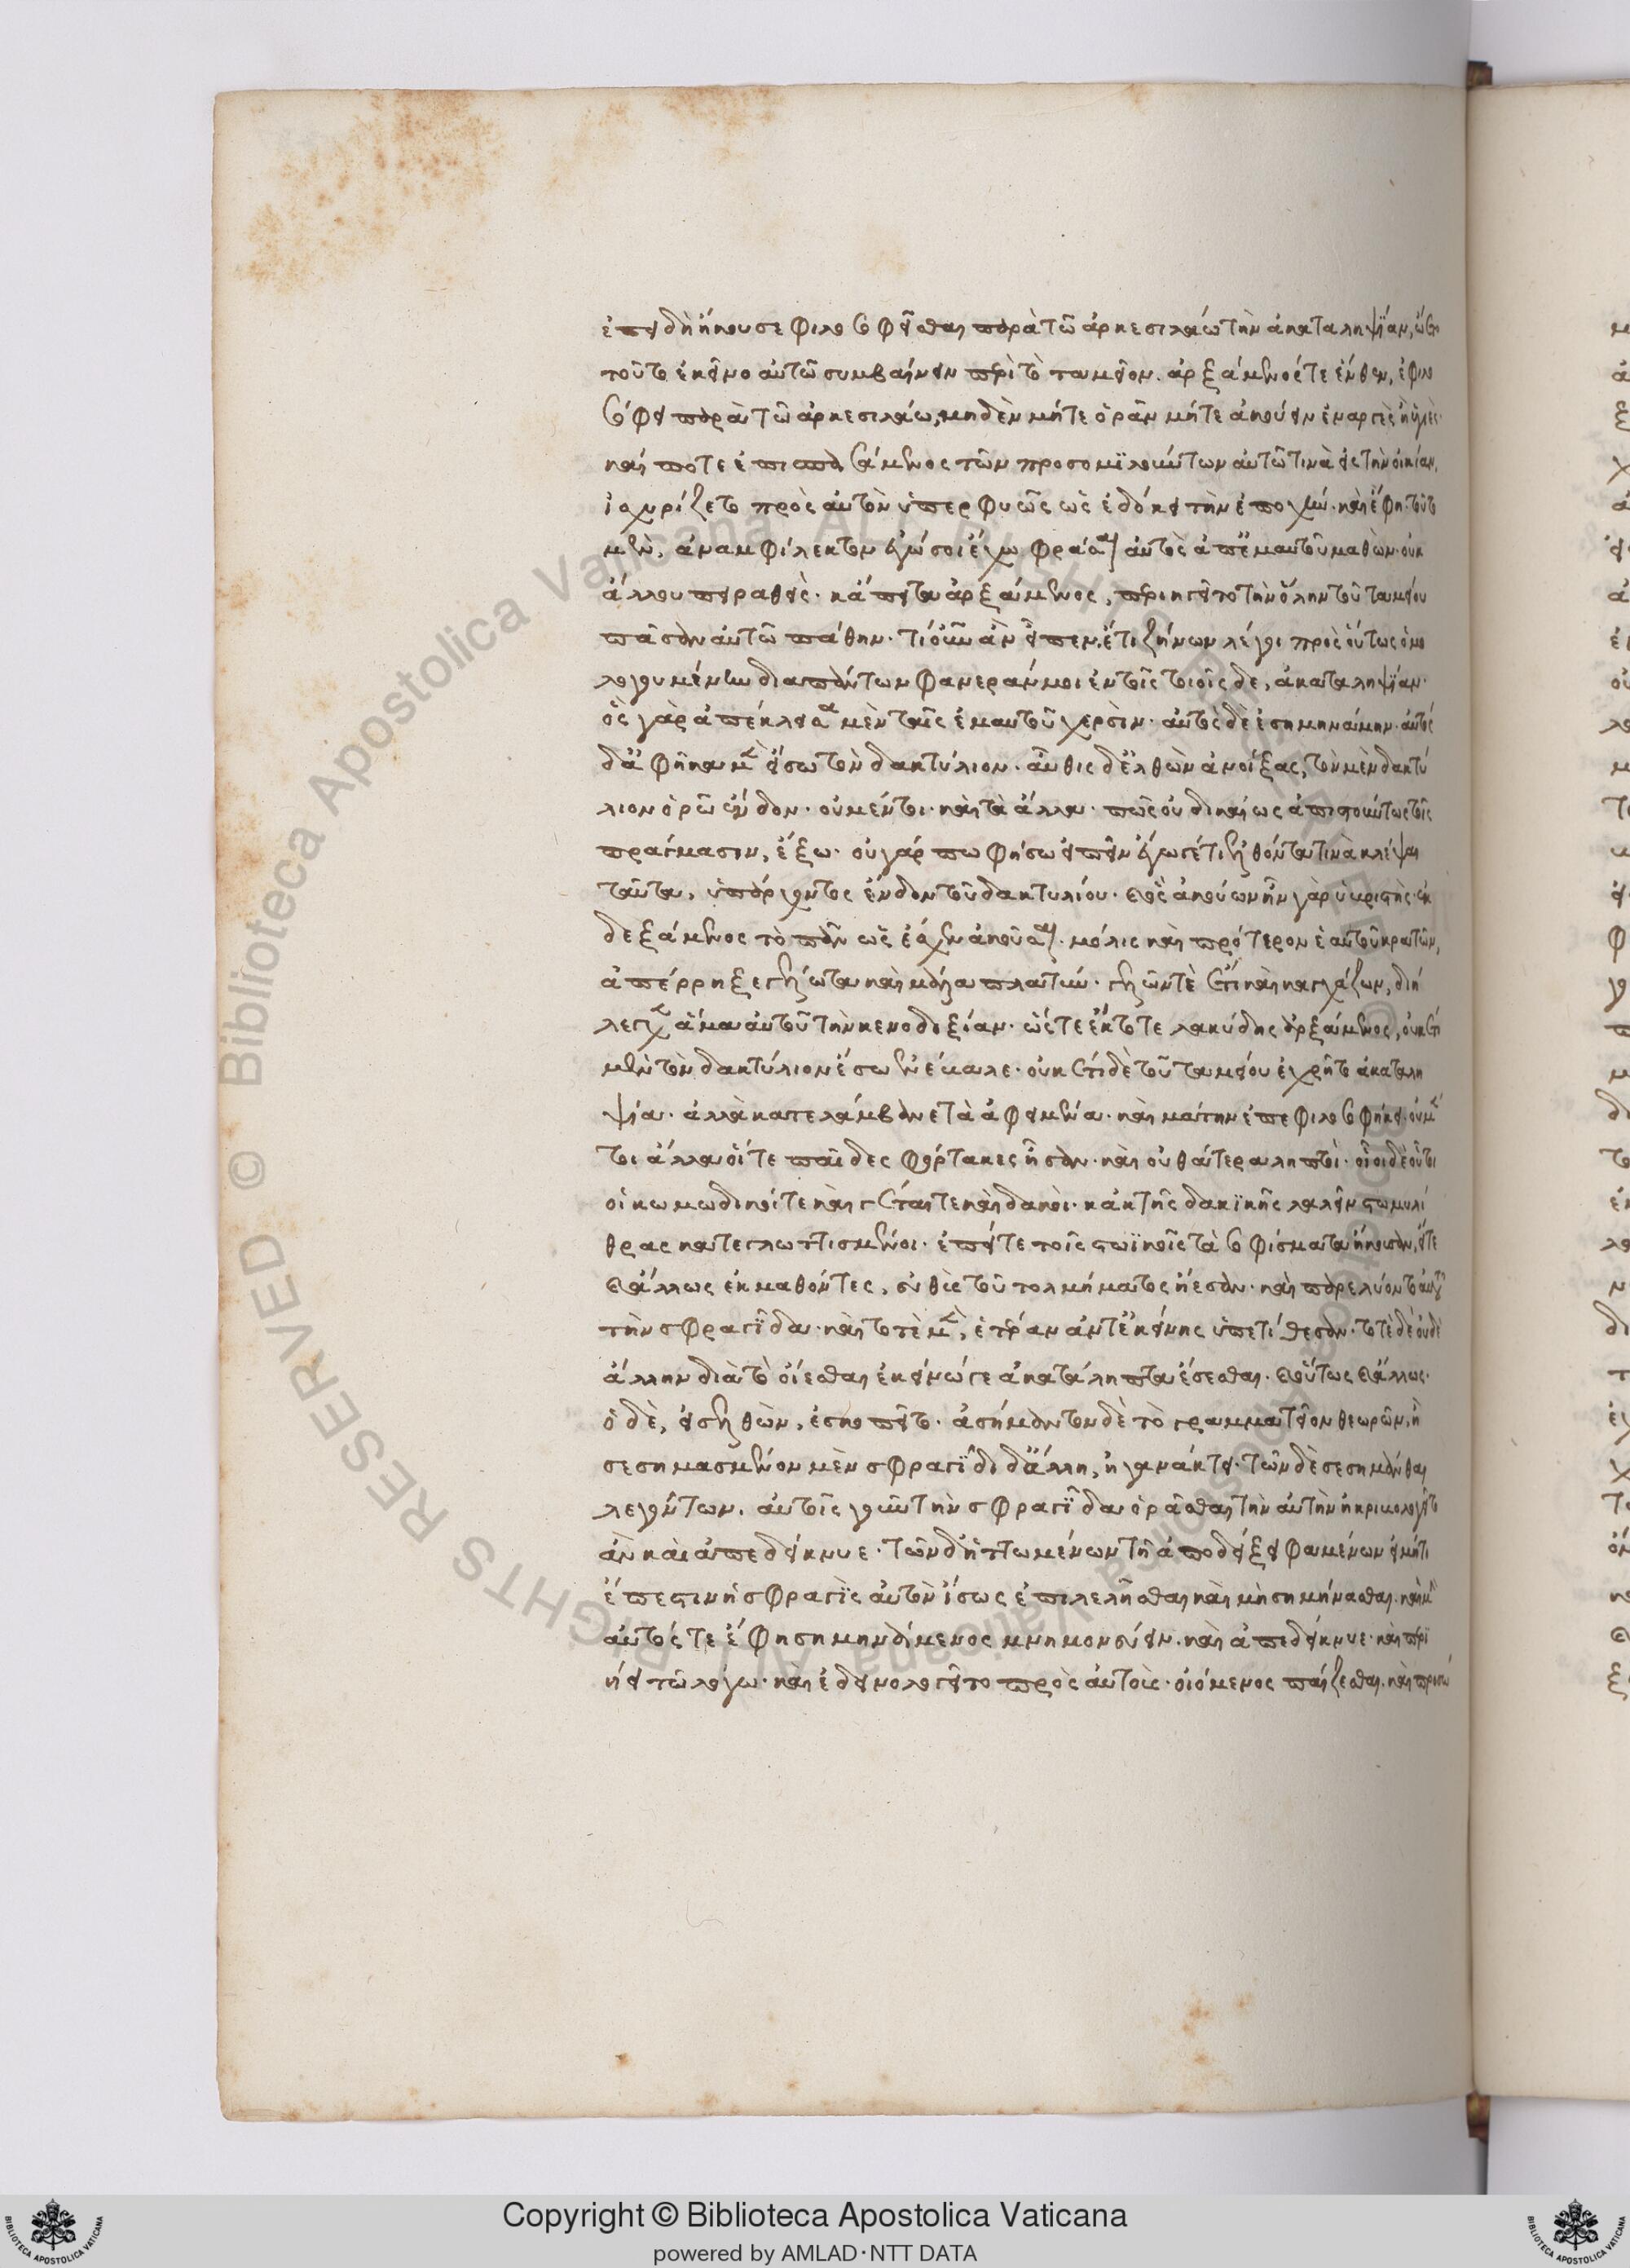 ἐπειδὴ ἤκουσε φιλοσοφεῖσθαι παρὰ τῶ ἀρκεσιλάω τὴν ἀκαταληψΐαν, ὤετο
τοῦτο ἐκεῖνο αὐτῶ συμβαίνειν περὶ τὸ ταμεῖον. ἀρξάμενός τε ἔνθεν, ἐφιλο
σόφει παρὰ τῶ ἀρκεσιλάω, μηδὲν μήτε ὁρᾶν μήτε ἀκούειν ἐναργὲς ἢ ὑγιὲς·
καί ποτε ἐπισπασάμενος τῶν προσομϊλούντων αὐτῶ τινὰ εἰς τὴν οἰκίαν,
ἰσχυρίζετο πρὸς αὐτὸν ὑπερφυῶς ὡς ἐδόκει τὴν ἐποχήν· καὶ ἔφη· τοῦτο
μὲν, ἀναμφίλεκτον ἐγώ σοι ἔχω φράσαι αὐτὸς ἀπ' ἐμαυτοῦ μαθὼν· οὐκ
ἄλλου πειραθεὶς· κἄπειτα ἀρξάμενος, περιηγεῖτο τὴν ὅλην τοῦ ταμείου
πᾶσαν αὐτῶ πάθην· τί οὖν ἂν εἶπεν, ἔτι ζήνων λέγοι πρὸς οὕτως ὁμο
λογουμένην διαπάντων φανεράν μοι ἐν τοῖς τοιοῖσδε, ἀκαταληψΐαν·
ὃς γὰρ ἀπέκλεισα μὲν ταῖς ἐμαυτοῦ χερσὶν· αὐτὸς δὲ ἐσημηνάμην· αὐτὸς
δ' ἀφῆκα μὲν εἴσω τὸν δακτύλιον· αὖθις δ' ἐλθὼν ἀνοίξας, τὸν μὲν δακτύ
λιον ὁρῶ ἔνδον· οὐ μέντοι· καὶ τὰ ἄλλα· πῶς οὐ δικαίως ἀπιστούντως τοῖς
πράγμασιν, ἕξω· οὐ γάρ πω φήσω εἰπεῖν ἔγωγέ τι ἐλθόντα τινὰ κλέψαι
ταῦτα, ὑπάρχοντος ἔνδον τοῦ δακτυλίου· καὶ ὃς ἀκούων ἦν γὰρ ὑβριστὴς· ἐκ
δεξάμενος τὸ πᾶν ὡς ἔσχεν ἀκοῦσαι· μόλις καὶ πρότερον ἑαυτοῦ κρατῶν,
ἀπέρρηξε γέλωτα καὶ μάλα πλατύν· γελῶν τὲ ἔτι καὶ καγχάζων, διή
λεγχεν ἅμα αὐτοῦ τὴν κενοδοξίαν· ὥστε ἔκτοτε λακύδης ἀρξάμενος, οὐκέτι
μὲν τὸν δακτύλιον ἔσω ἐνέβαλε· οὐκέτι δὲ τοῦ ταμείου ἐχρῆτο ἀκαταλη
ψία· ἀλλὰ κατελάμβανε τὰ ἀφειμένα· καὶ μάτην ἐπεφιλοσοφήκει· οὐ μέν
τοι ἀλλὰ οἵ τε παῖδες φόρτακες ἦσαν· καὶ οὐ θάτερα ληπτοὶ· οἷοι δὲ οὗτοι
οἱ κωμωδικοί τε καὶ γέται τε καὶ δακοὶ· κἀκ τῆς δακϊκῆς λαλεῖν στωμυλί
θρας κατεγλωττισμένοι· ἐπεί τε τοῖς στωϊκοῖς τὰ σοφίσματα ἤκουσαν, εἴτε
καὶ ἄλλως ἐκμαθόντες, εὐθὺς τοῦ τολμήματος ᾔεσαν· καὶ παρελύοντο αὐτοῦ
τὴν σφραγῖδα· καὶ τοτὲ μὲν, ἑτέραν ἀντ' ἐκείνης ὑπετίθεσαν· τοτὲ δὲ οὐδὲ
ἄλλην διὰ τὸ οἴεσθαι ἐκεῖνόν γε ἀκατάληπτα ἔσεσθαι· καὶ οὕτως καὶ ἄλλως·
ὁ δὲ, εἰσελθὼν, ἐσκοπεῖτο· ἀσήμαντον δὲ τὸ γραμματεῖον θεωρῶν, ἢ
σεσημασμένον μὲν σφραγῖδι δ' ἄλλη, ἠγανάκτει· τῶν δὲ σεσημάνθαι
λεγόντων, αὐτοῖς γοῦν τὴν σφραγῖδα ὁρᾶσθαι τὴν αὐτὴν ἠκριβολογεῖτο
ἂν καὶ ἀπεδείκνυε· τῶν δ' ἡττωμένων τῆ ἀποδείξει φαμένων εἰ μήτι
ἔπεστιν ἡ σφραγὶς αὐτὸν ἴσως ἐπιλελῆσθαι καὶ μὴ σημήνασθαι· καὶ μὴν
αὐτός τε ἔφη σημηνάμενος μνημονεύειν· καὶ ἀπεδείκνυε· καὶ περϊ
ῄει τῶ λόγω· καὶ ἐδεινολογεῖτο πρὸς αὐτοὺς· οἰόμενος παίζεσθαι· καὶ προσώ